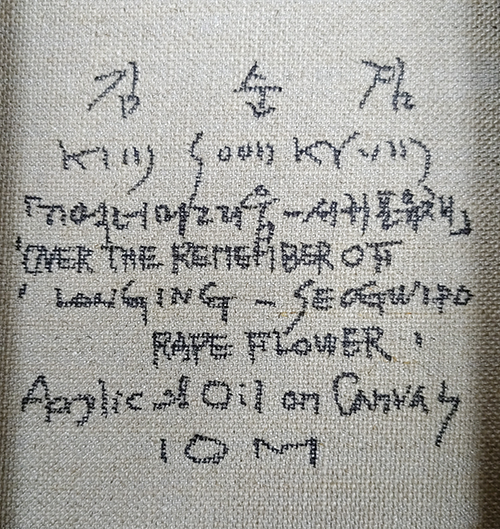 김 순 겸
KIM SOON KYUM
「기억너머그리움-서귀포
'OVER THE REMEMBER OF
' LONGING - SEOGWIPO
RAPE FLOWER '
Acrylic & Oil on Canvas
10 M